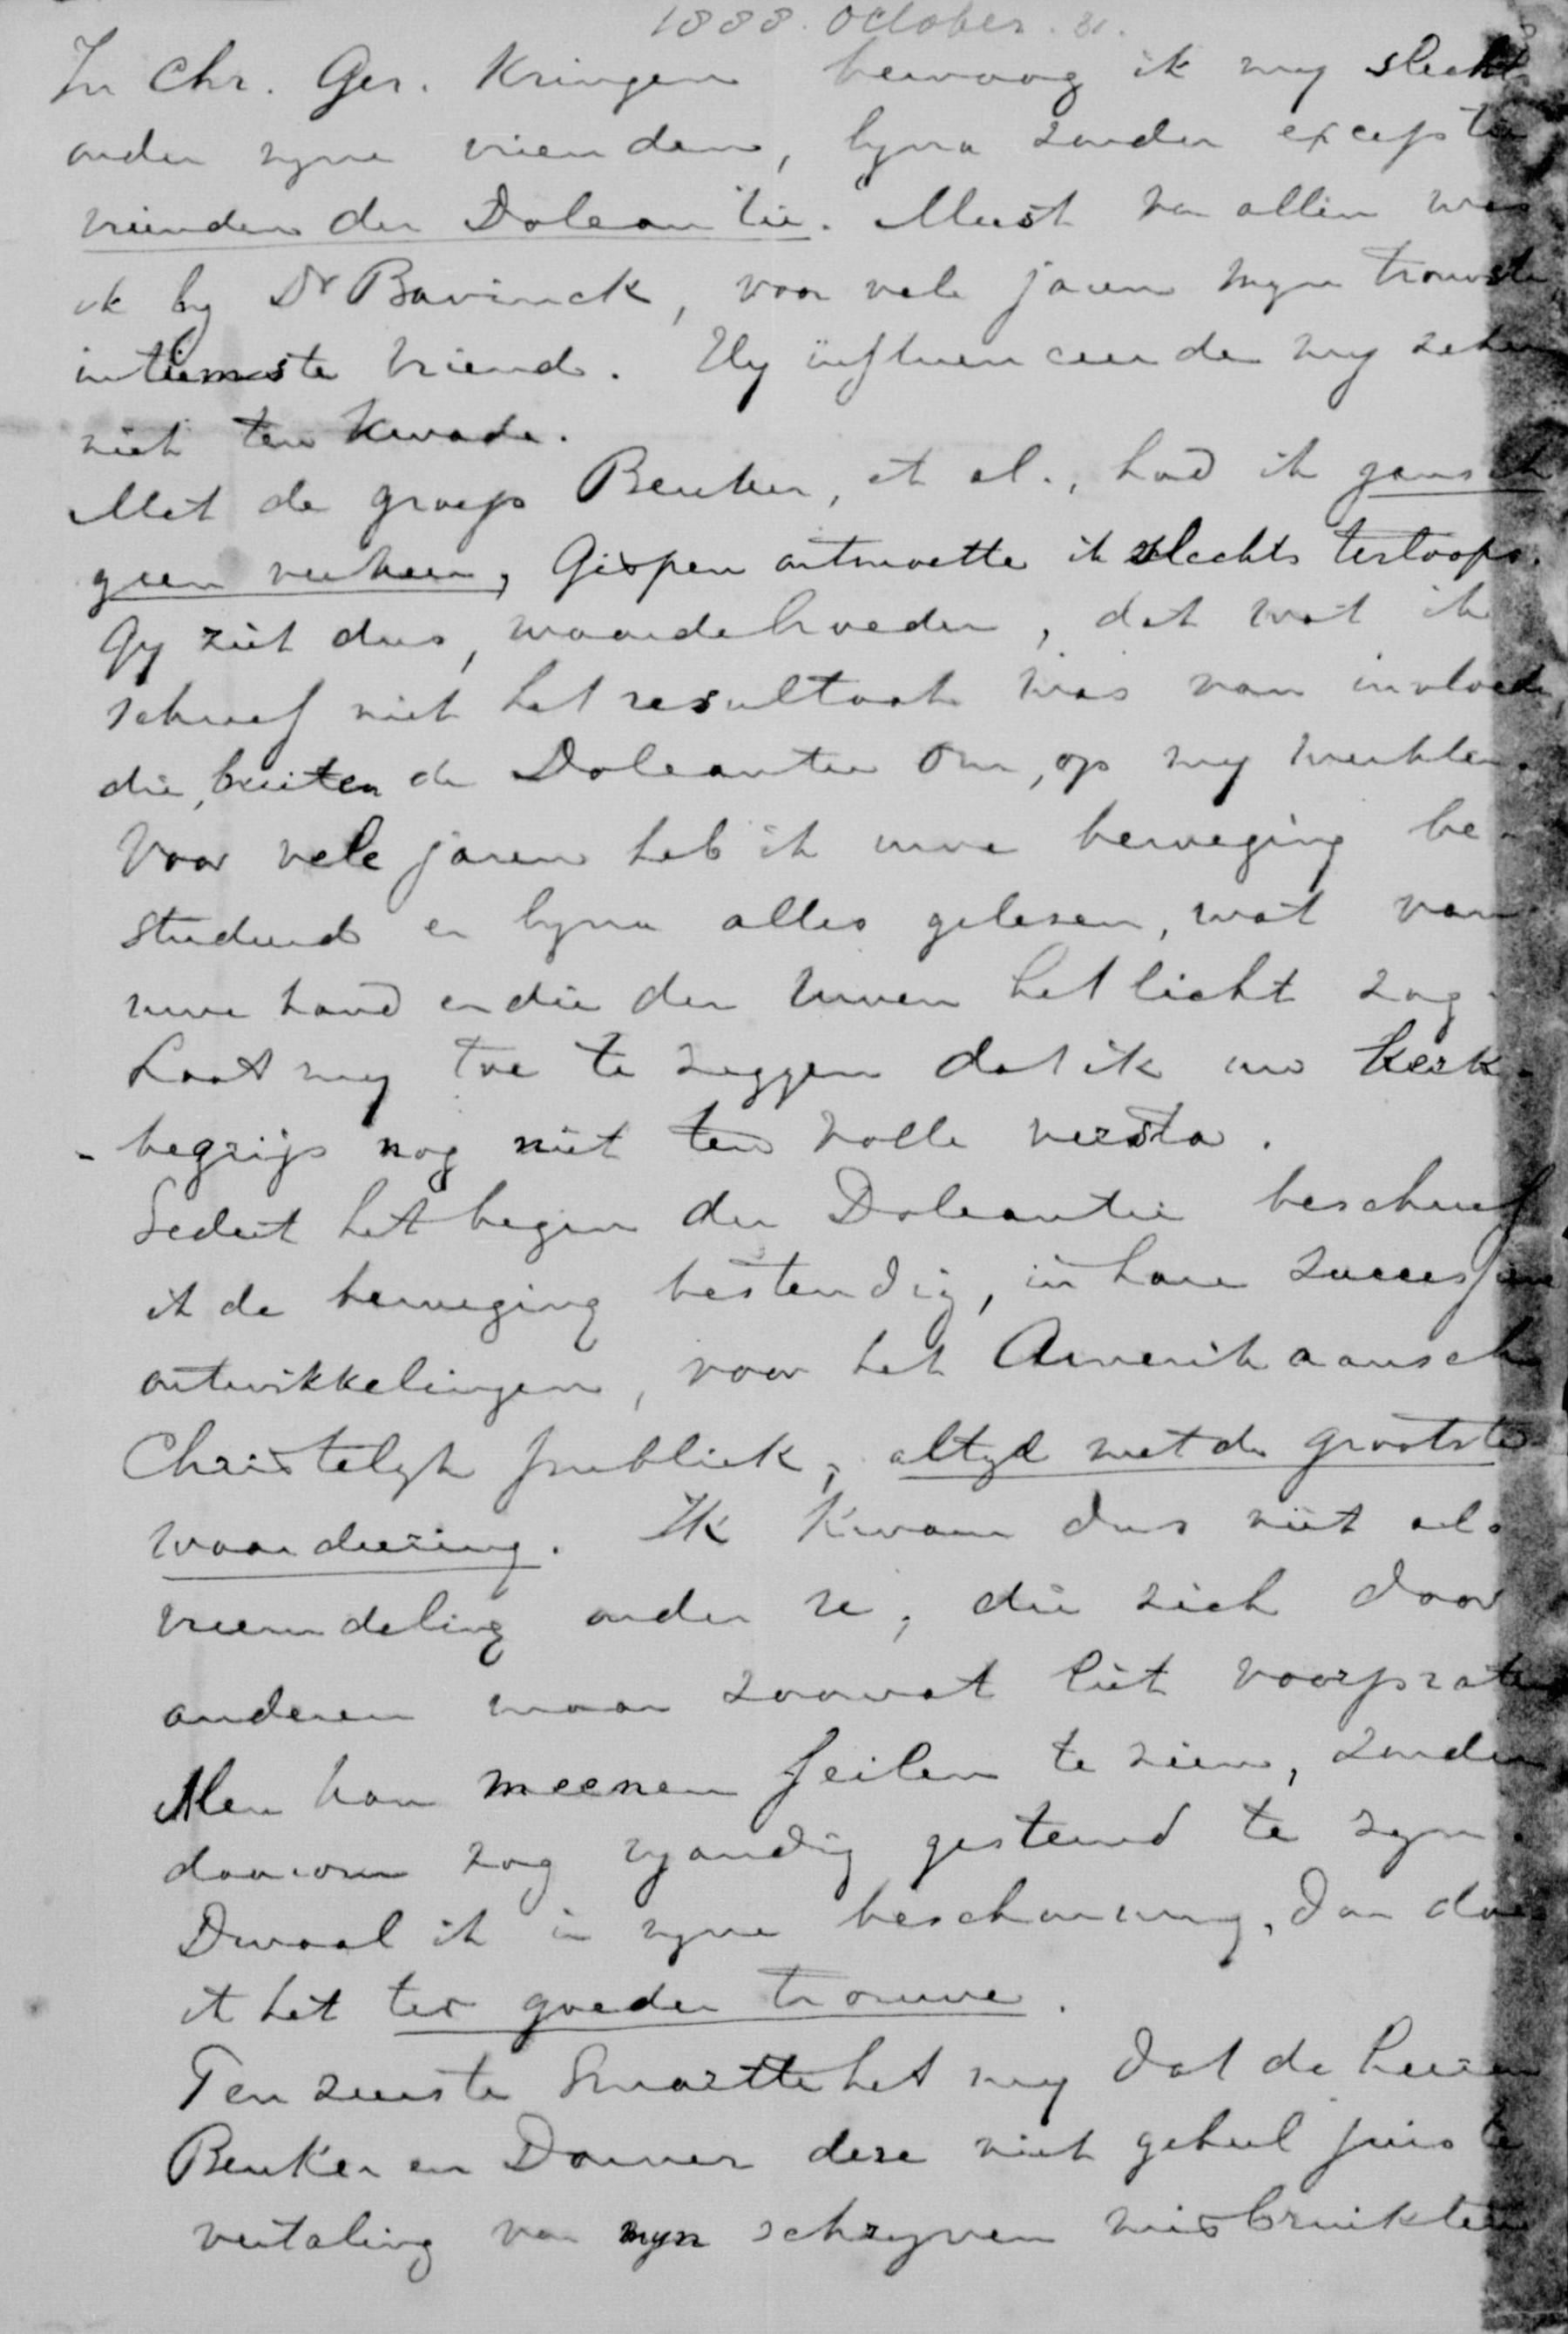 1888. October. 31.
In Chr. Ger. Kringen bewoog ik my slechts
onder zyne vrienden, byna zonder exceptie
vrienden der Doleantie. Meest van allen was
ik by Dr Bavinck, voor vele jaren myn trouwste
intiemste vriend. Hy influenceerde my zeker
niet ten kwade.
Met de groep Beuker, et al., had ik gansch
geen verkeer, Gispen ontmoette ik slechts terloops.
Gy ziet dus, waarde broeder, dat wat ik
schreef niet het resultaat was van invloeden,
die, buiten de Doleantie om, op my werkten.
Voor vele jaren heb ik uwe beweging be-
studeerd en byna alles gelesen, wat van
uwe hand en die der uwen het licht zag.
Laat my toe te zeggen dat ik uw Kerk-
-begrip nog niet ten volle versta.
Sedert het begin der Doleantie beschreef
ik de beweging bestendig, in hare successieve
ontwikkelingen, voor het Amerikaansche
Christelyk publiek, altyd met de grootste
waardeering. Ik kwam dus niet als
vreemdeling onder U, die zich door
anderen maar zoowat liet voorpraten
Men kan meenen feilen te zien, zonder
daarom nog vyandig gestemd te zyn.
Dwaal ik in myne beschouwing, dan doe
ik het ter goeder trouwe.
Ten zeerste smartte het my dat de heeren
Beuker en Donner deze niet geheel juiste
vertaling van myn schryven misbruikten